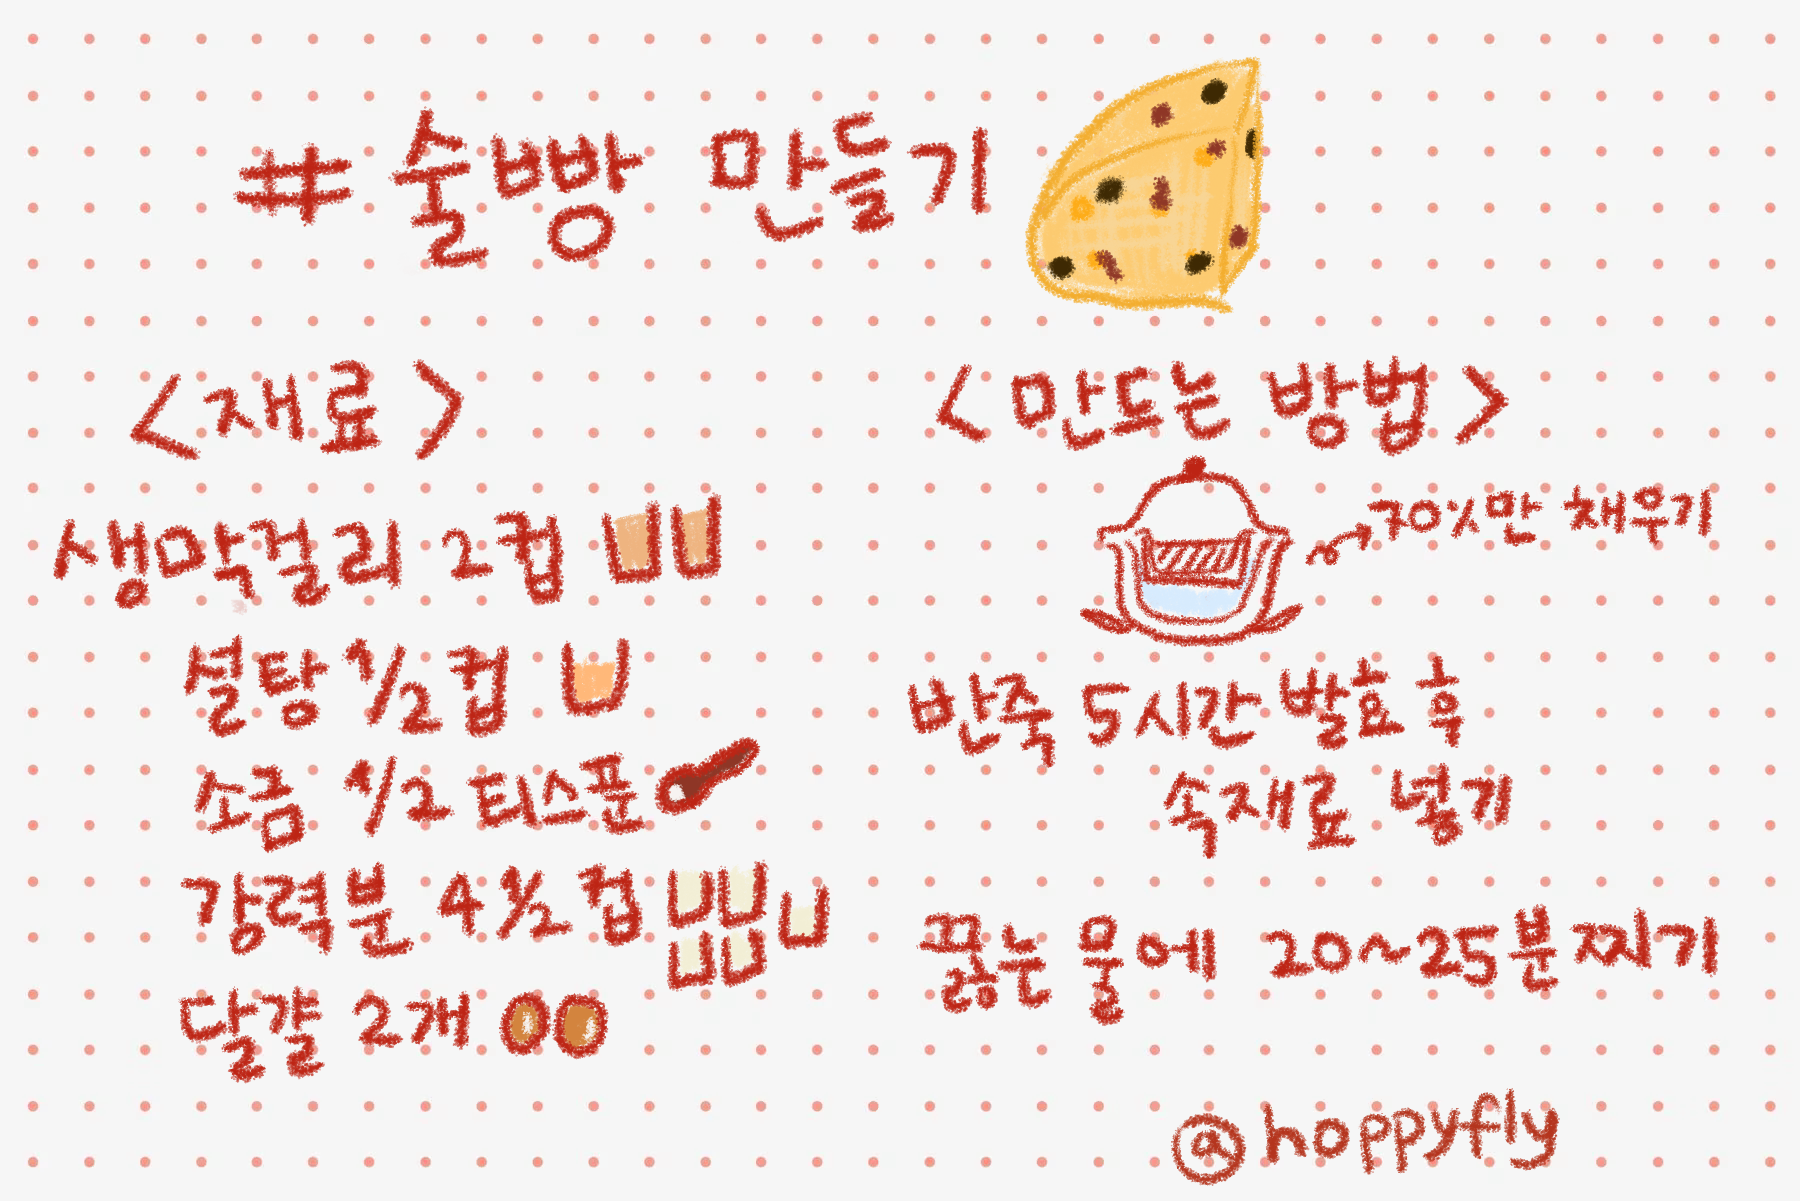 #술빵 만들기
<재료>
생막걸리 2컵
설탕 1/2컵
소금 1/2 티스푼
강력분 4 1/2컵
달걀 2개
<만드는 방법>
70%만 채우기
반죽 5시간 발효 후
속재료 넣기
끓는 물에 20~25분 찌기
@hoppyfly